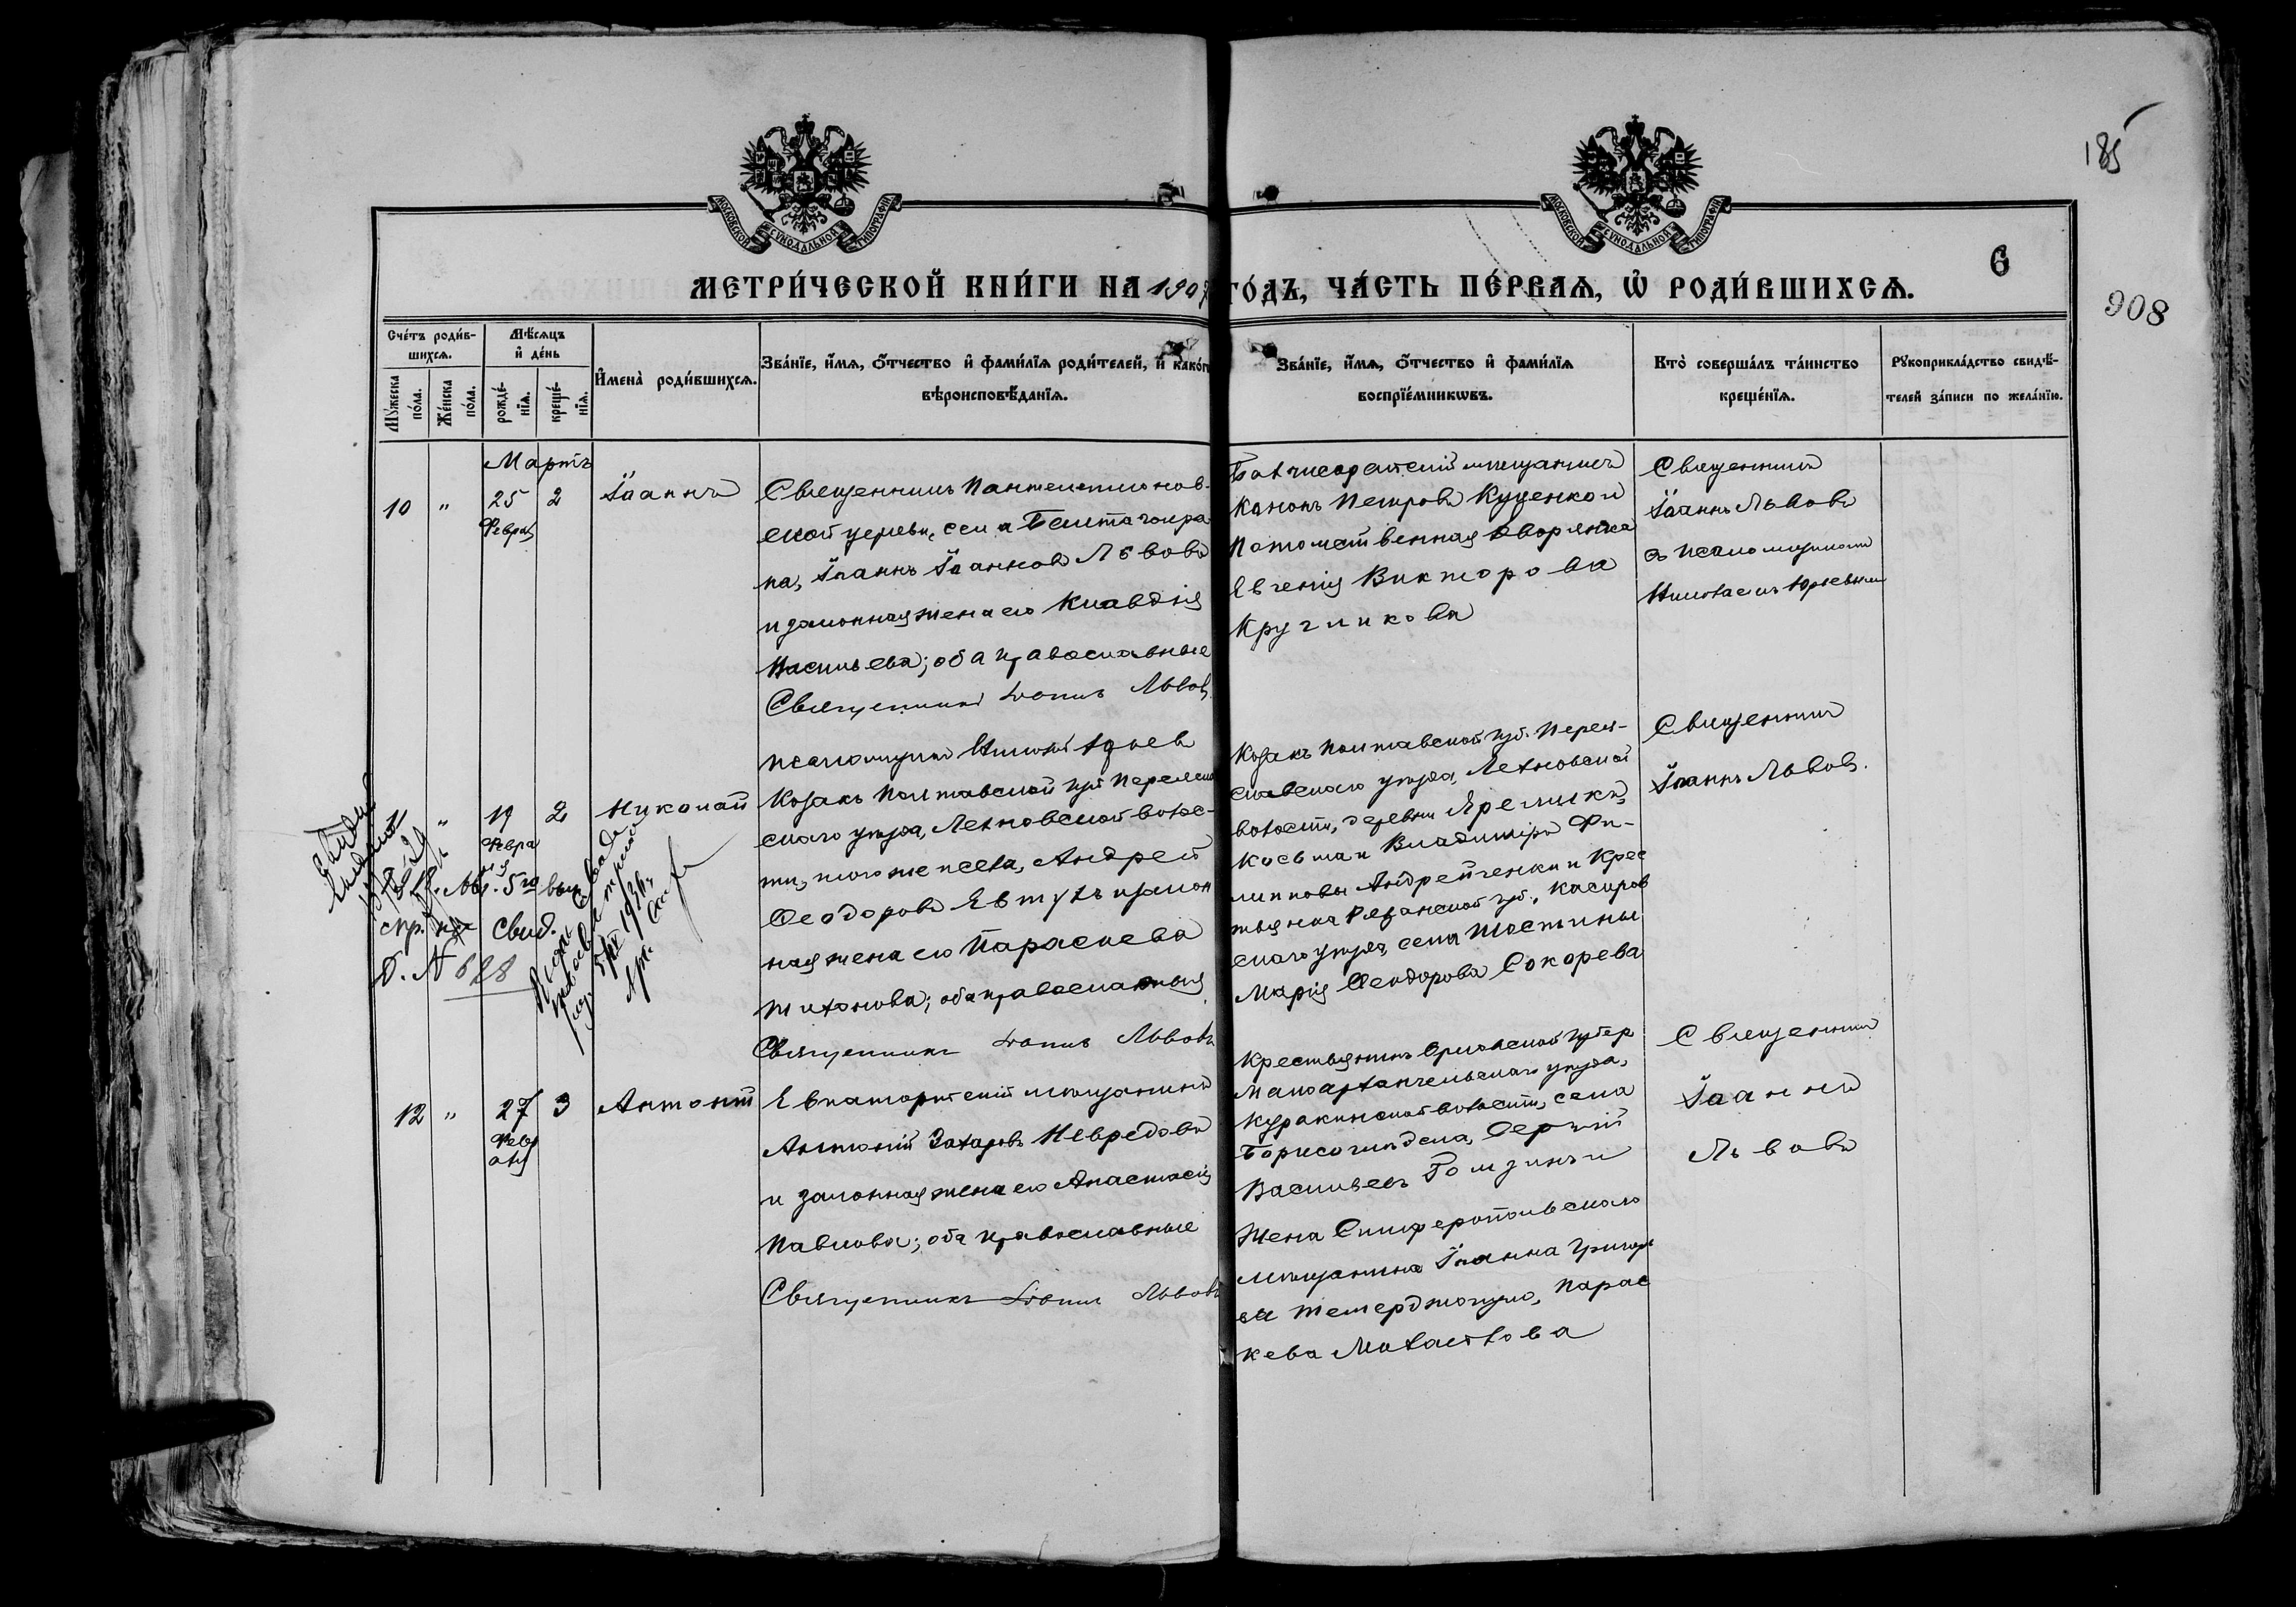 185
МОСКОВСКОЙ СУНОДАЛЬНОЙ ТИПОГРАФІИ
МОСКОВСКОЙ СУНОДАЛЬНОЙ ТИПОГРАФІИ
6
МЕТРИ́ЧЕСКОЙ КНИ́ГИ НА 1907 ГО́ДЪ, ЧА́СТЬ ПЕ́РВАѦ, Ѡ҆ РОДИ́ВШИХСѦ.
908
Сче́тъ роди́в-
шихсѧ.
Мꙋ́жеска по́ла.
Же́нска по́ла.
Мѣ́сѧцъ
и҆ де́нь
рожде́-
нїѧ.
креще́-
нїѧ.
И҆мена̀ роди́вшихсѧ.
Зва́нїе, и҆́мѧ, ѻ҆́тчество и҆ фами́лїѧ роди́телей, и҆ како́гѡ
вѣроисповѣ́данїѧ.
Зва́нїе, и҆́мѧ, ѻ҆́тчество и҆ фами́лїѧ
воспрїе́мникѡвъ.
Кто̀ соверша́лъ та́инство
креще́нїѧ.
Рꙋкоприкла́дство свидѣ́-
телей за́писи по жела́нїю.
Мартъ
10 " 25 2 Іоаннъ
Февра
Священникъ Пантелеимонов-
ской церкви, села
на, Іоаннъ Іоанновъ Львовъ
и законная жена его Клавдія
Васильева; оба православные
Священникъ Іоаннъ Львовъ
Псаломщикъ
мѣщанинъ
Кононъ Петровъ Куценко и
Потомственная дворянка
Евгенія Викторова
Кругликова
Священникъ
Іоаннъ Львовъ
съ псаломщикомъ
Николаемъ Юрьевымъ
" 19 2 Николай
Февра
Козакъ Полтавской губ Переяслав
скаго уѣзда, Лехновской волос-
ти, того же села, Андрей
Ѳеодоровъ Евтухъ и закон
ная жена его Параскева
Тихонова; оба православные
Священникъ Іоаннъ Львовъ
Козакъ Полтавской губ. Перея-
славскаго уѣзда, Лехновской
волости, деревни Яремики,
Косьма и Владиміръ Фи-
липповы Андрейченки и Крес
тьянка Рязанской губ., Касимов
скаго уѣзда, села
Марія Ѳеодорова Сокорева
Священникъ
Іоаннъ Львовъ.
Свид.
№ 688
1936г.
12 " 27 3 Антоній
Февр
аля
Евпаторійскій мѣщанинъ
Антоній Захаровъ Невредовъ
и законная жена его Анастасія
Павлова; оба православные
Священникъ Іоаннъ Львовъ
Крестьянинъ Орловской губер
Малоархангельскаго уѣзда,
Куракинской волости, села
Борисоглебска, Сергій
Васильевъ и
Жена Симферопольскаго
мѣщанина Іоанна Григорь
ева Парас
кева
Священникъ
Іоаннъ
Львовъ